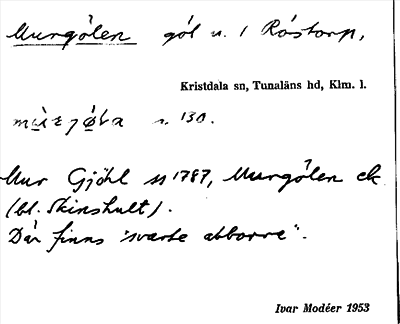 Murgölen göl n. / Råstorp,
Kristdala sn, Tunaläns hd, Klm. l.
s. 130.
Mur Gjöhl ss 1787, Murgölen ek
(bl. Skinshult).
Där finns "svarte abborre".
Ivar Modéer 1953